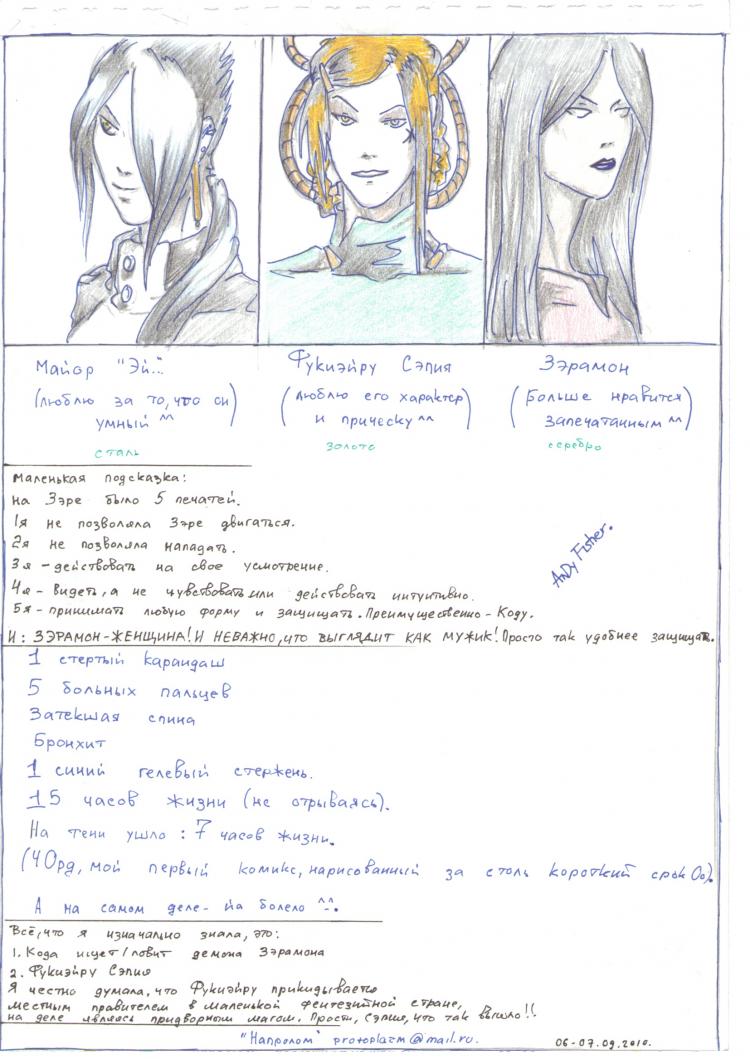 Майор "Эй..."
(люблю за то, что он
умный ^^)
сталь
Фукиэйру Сэпия
(люблю его характер
и прическу ^^)
золото
Зэрамон
(Больше нравится
запечатанным ^^)
серебро
Маленькая подсказка:
на Зэре было 5 печатей.
1я не позволяла Зэре двигаться.
2я не позволяла нападать.
3я - действовать на свое усмотрение.
4я - Видеть, а не чувствовать или действовать интуитивно.
5я - принимать любую форму и защищать. Преимущественно - Коду.
AnDy Fisher.
И: ЗЭРАМОН-ЖЕНЩИНА! И НЕВАЖНО, что ВЫГЛЯДИТ КАК МУЖИК! Просто так удобнее защищать.
1 стертый карандаш
5 больных пальцев
Затекшая спина
Бронхит
1 синий гелевый стержень.
15 часов жизни (не отрываясь).
На тени ушло : 7 часов жизни.
(ЧОрд, мой первый комикс, нарисованный за столь короткий срок Оо).
А на самом деле - йа болело ^^.
Всё, что я изначально знала, это:
1. Кода ищет/ловит демона Зэрамона
2. Фукиэйру Сэпия
Я честно думала, что Фукиэйру прикидывается
местным правителем в маленькой фентезийной стране,
на деле являясь придворным магом. Прости, Сэпия, что так вышло!!
"Напролом" protoplazm@mail.ru.
06-07.09.2010.